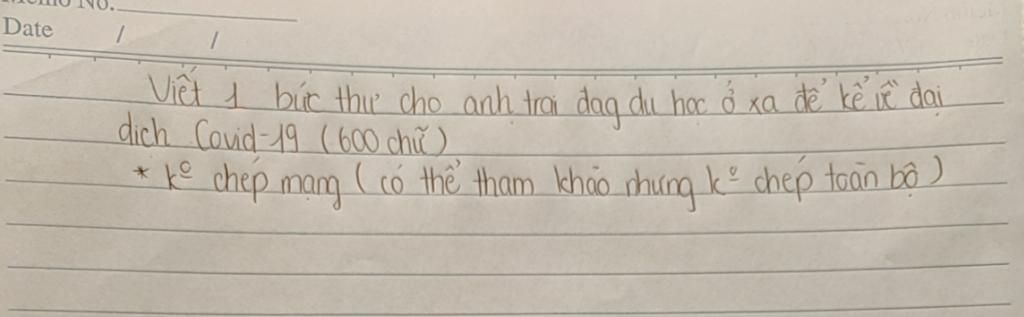 Memo No.
Date / /
Viết 1 bức thư cho anh trai đag du học ở xa để kể về đại
dịch Covid-19 (600 chữ)
* kº chép mạng (có thể tham khảo nhưng kº chép toàn bộ)